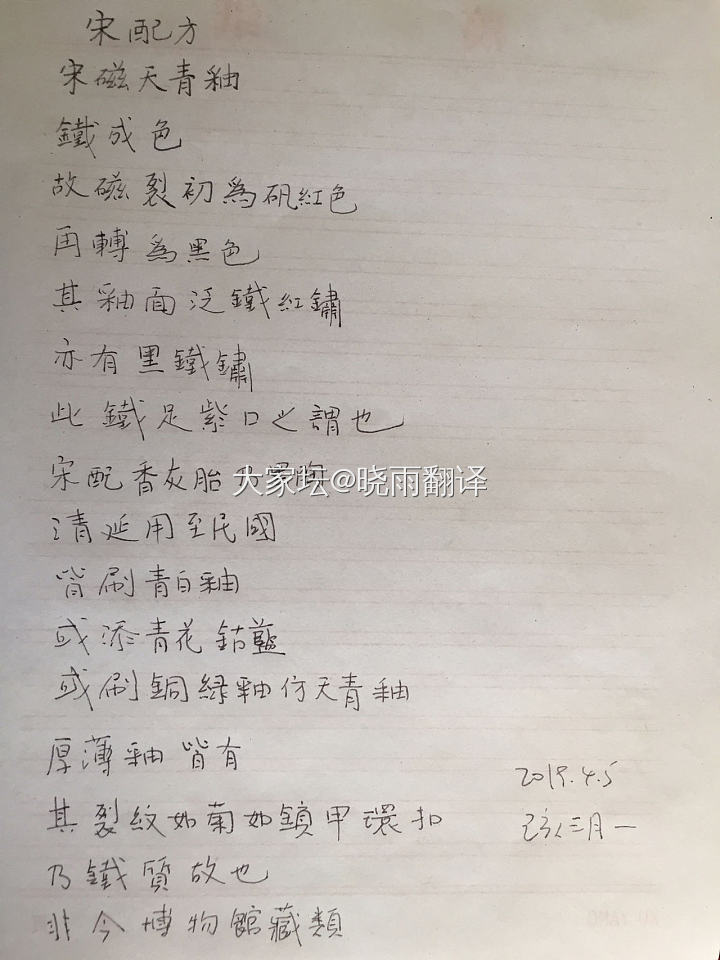 宋配方
宋磁天青釉
鐵成色
故磁裂初為矾紅色
再轉為黑色
其釉面泛鐵紅鏽
亦有黑鐵鏽
此鐵足紫口之謂也
宋配香灰胎
大家坛@晓雨翻译
清延用至民國
皆刷青白釉
或添青花鈷藍
或刷銅綠釉仿天青釉
厚薄釉皆有
2019.4.5
其裂紋如菊如鎖甲環扣
己亥三月一
乃鐵質故也
非今博物館藏類